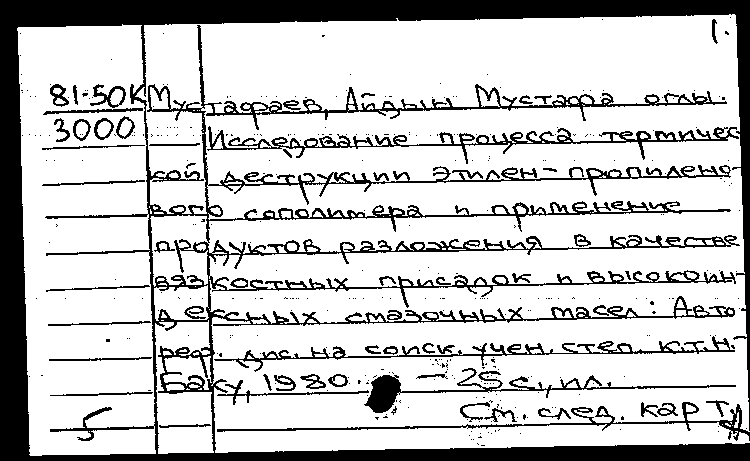 1.
81-50К Мустафаев, Айдын Мустафа оглы.
3000 Исследование процесса термичес
кой деструкции этилен-пропилено-
вого сополимера и применение
продуктов разложения в качестве
вязкостных присадок и высокоин-
дексных смазочных масел: Авто-
реф. дис. на соиск. учен. степ. к.т.н.-
Баку, 1980. - 25 с., ил.
5 См. след. карт.